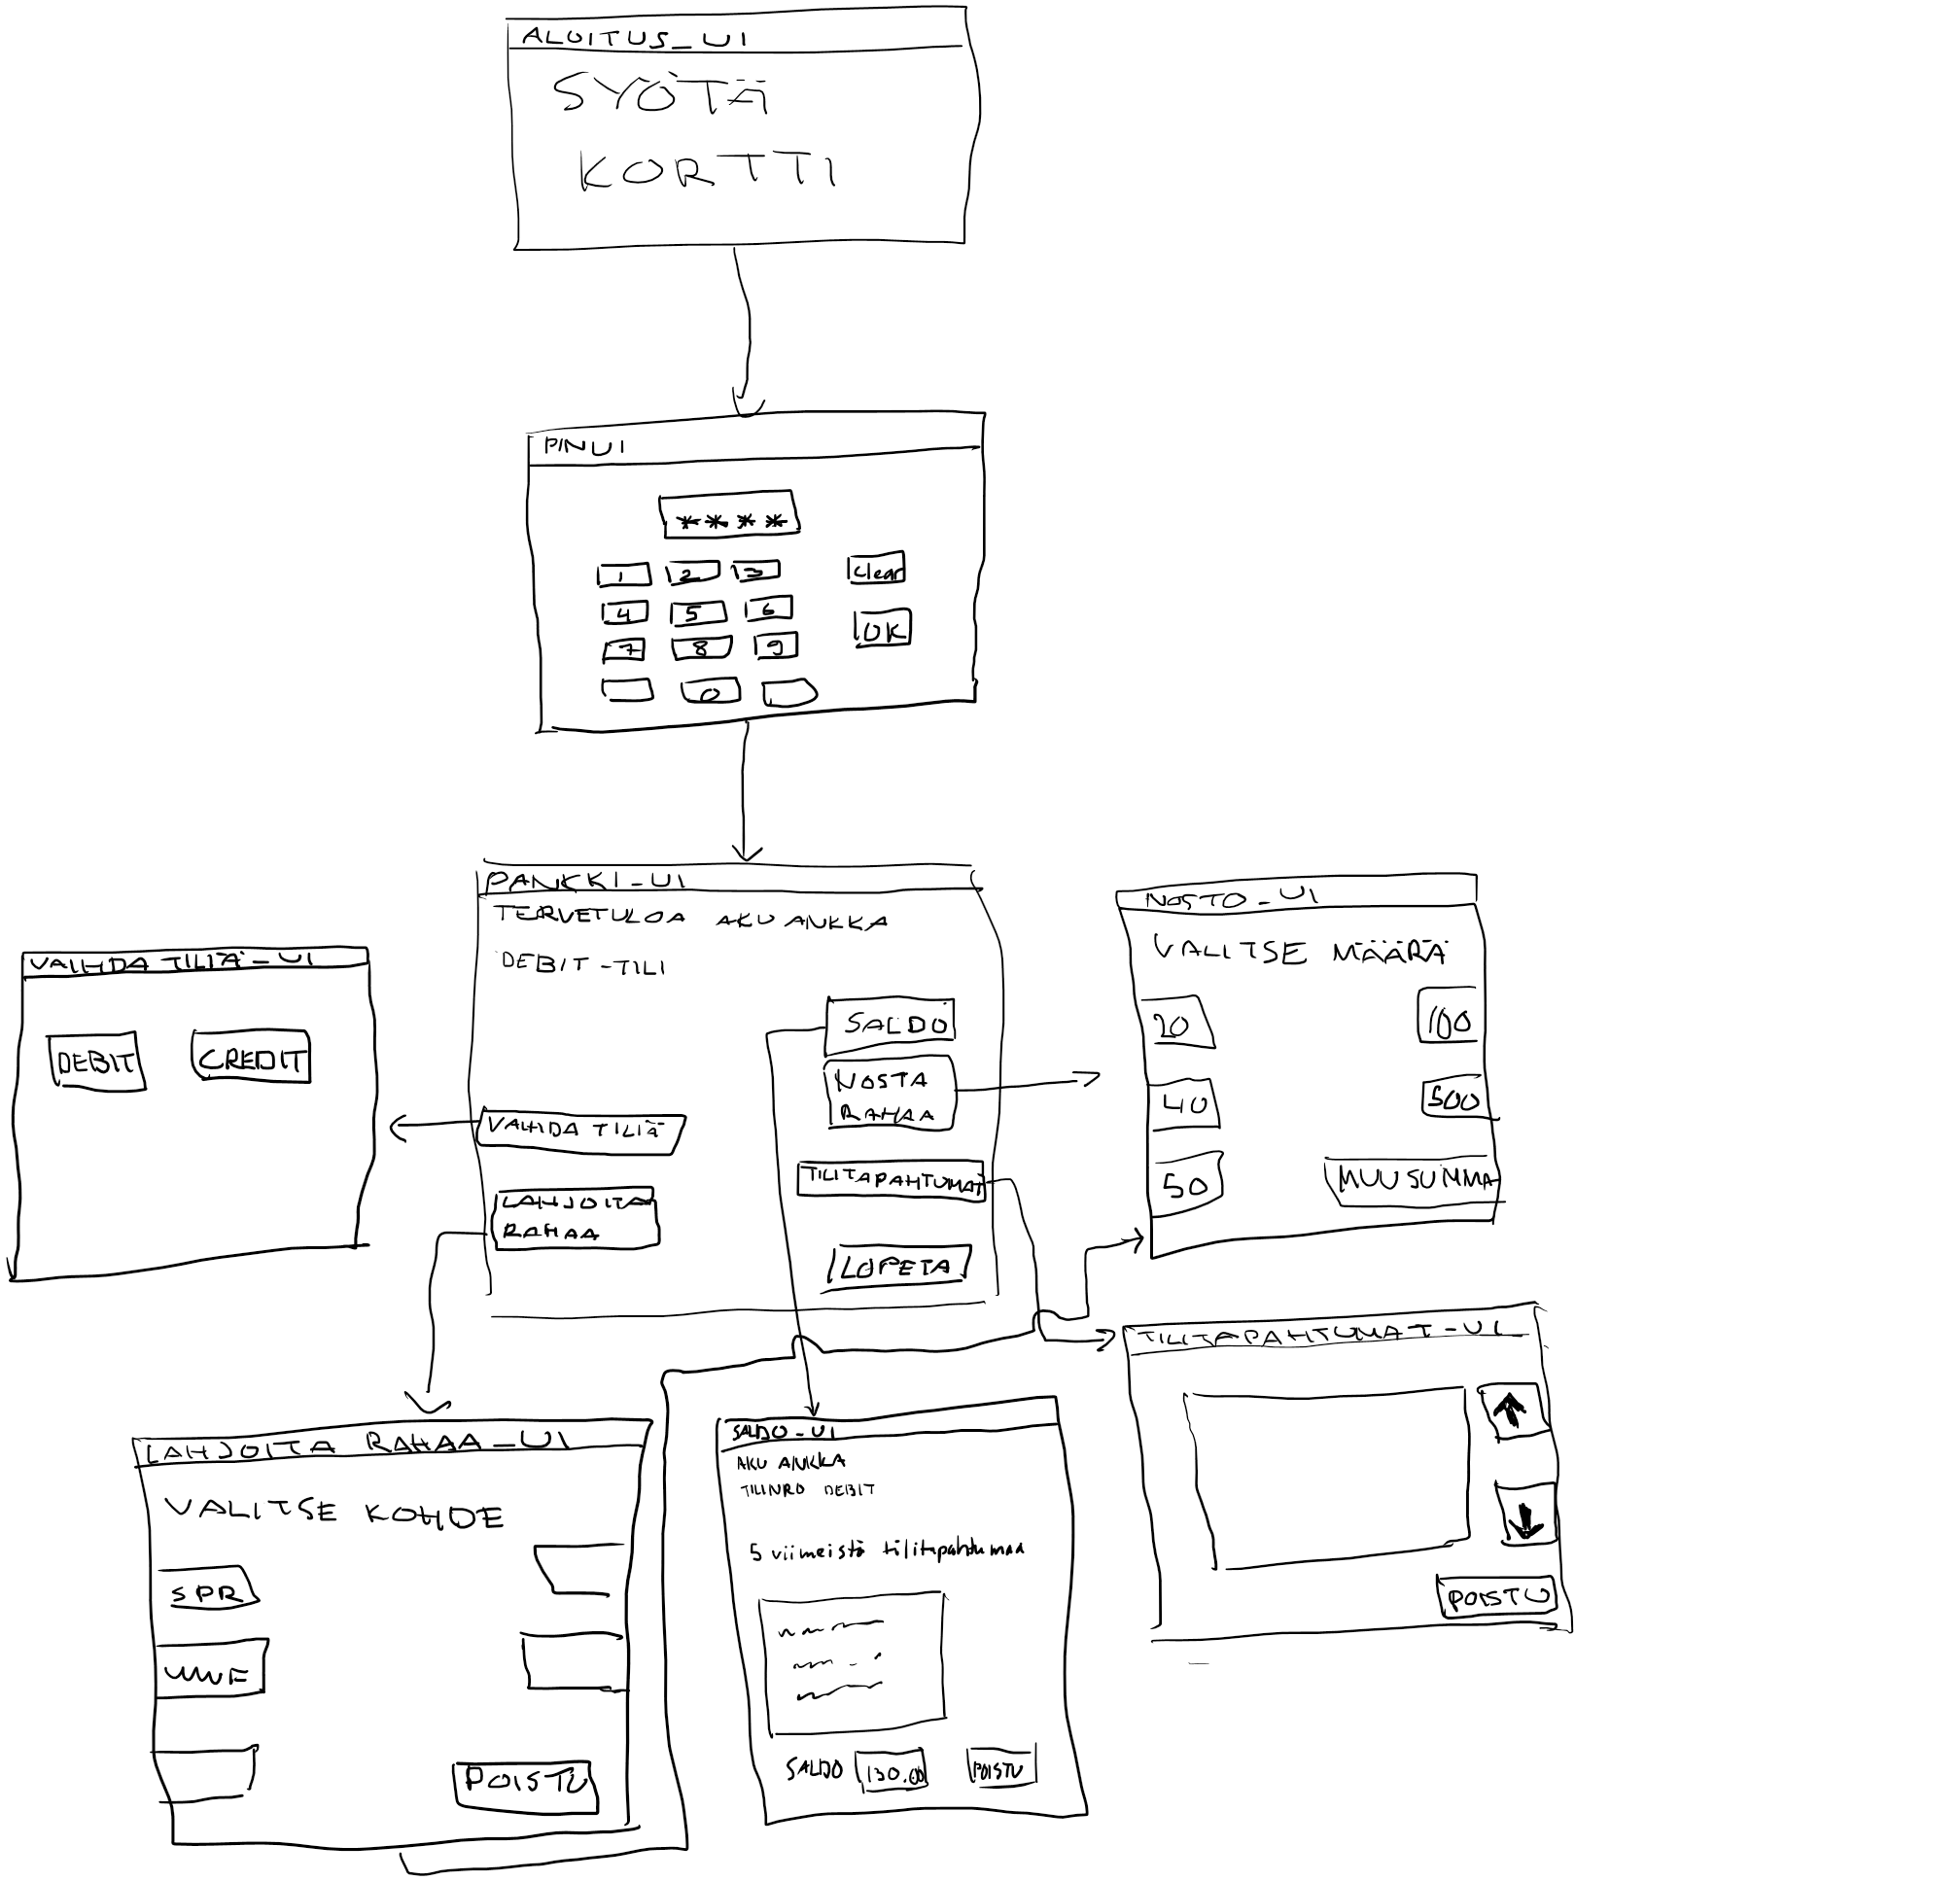 ALOITUS_UI
SYÖTÄ
KORTTI
PINUI
****
1 2 3 clear
4 5 6 OK
7 8 9
0
PANKKI-UI
TERVETULOA AKU ANKKA
DEBIT-TILI
SALDO
NOSTA
RAHAA
VAIHDA TILIÄ
TILITAPAHTUMAT
LAHJOITA
RAHAA
LOPETA
VAIHDA TILIÄ-UI
DEBIT CREDIT
NOSTO-UI
VALITSE MÄÄRÄ
20 100
40 500
50 MUU SUMMA
LAHJOITA RAHAA-UI
VALITSE KOHDE
SPR
WWF
POISTU
SALDO-UI
AKU ANKKA
TILINRO DEBIT
5 viimeistä tilitapahtumaa
SALDO 130.00 POISTU
TILITAPAHTUMAT-UI
↑
↓
POISTU